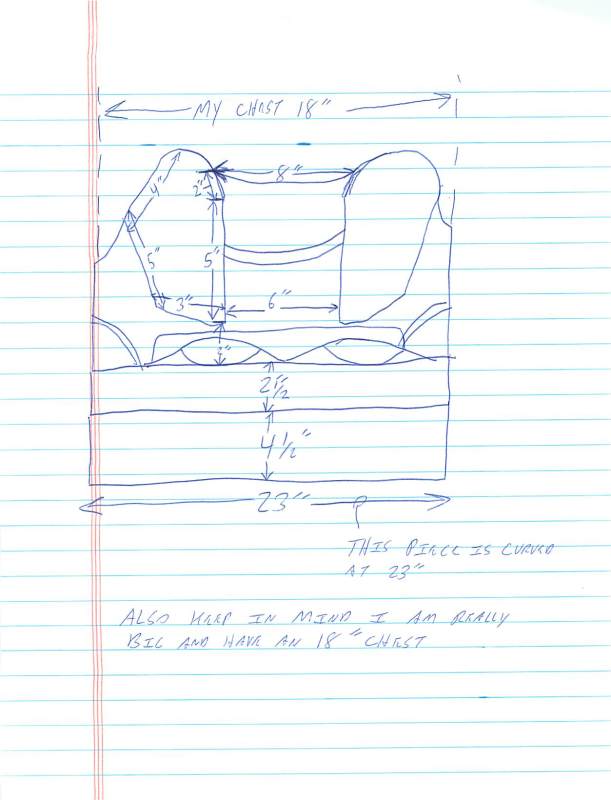 MY CHEST 18"
8"
4"
2"
5"
5"
3"
6"
4"
2 1/2"
4 1/2"
23"
THIS PIECE IS CURVED
AT 23"
ALSO KEEP IN MIND I AM REALLY
BIG AND HAVE AN 18" CHEST